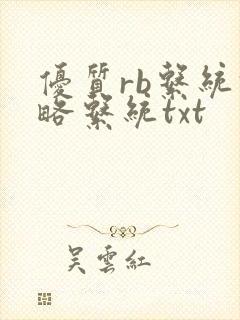 優質rb繫統
略繫統txt
吴雲紅